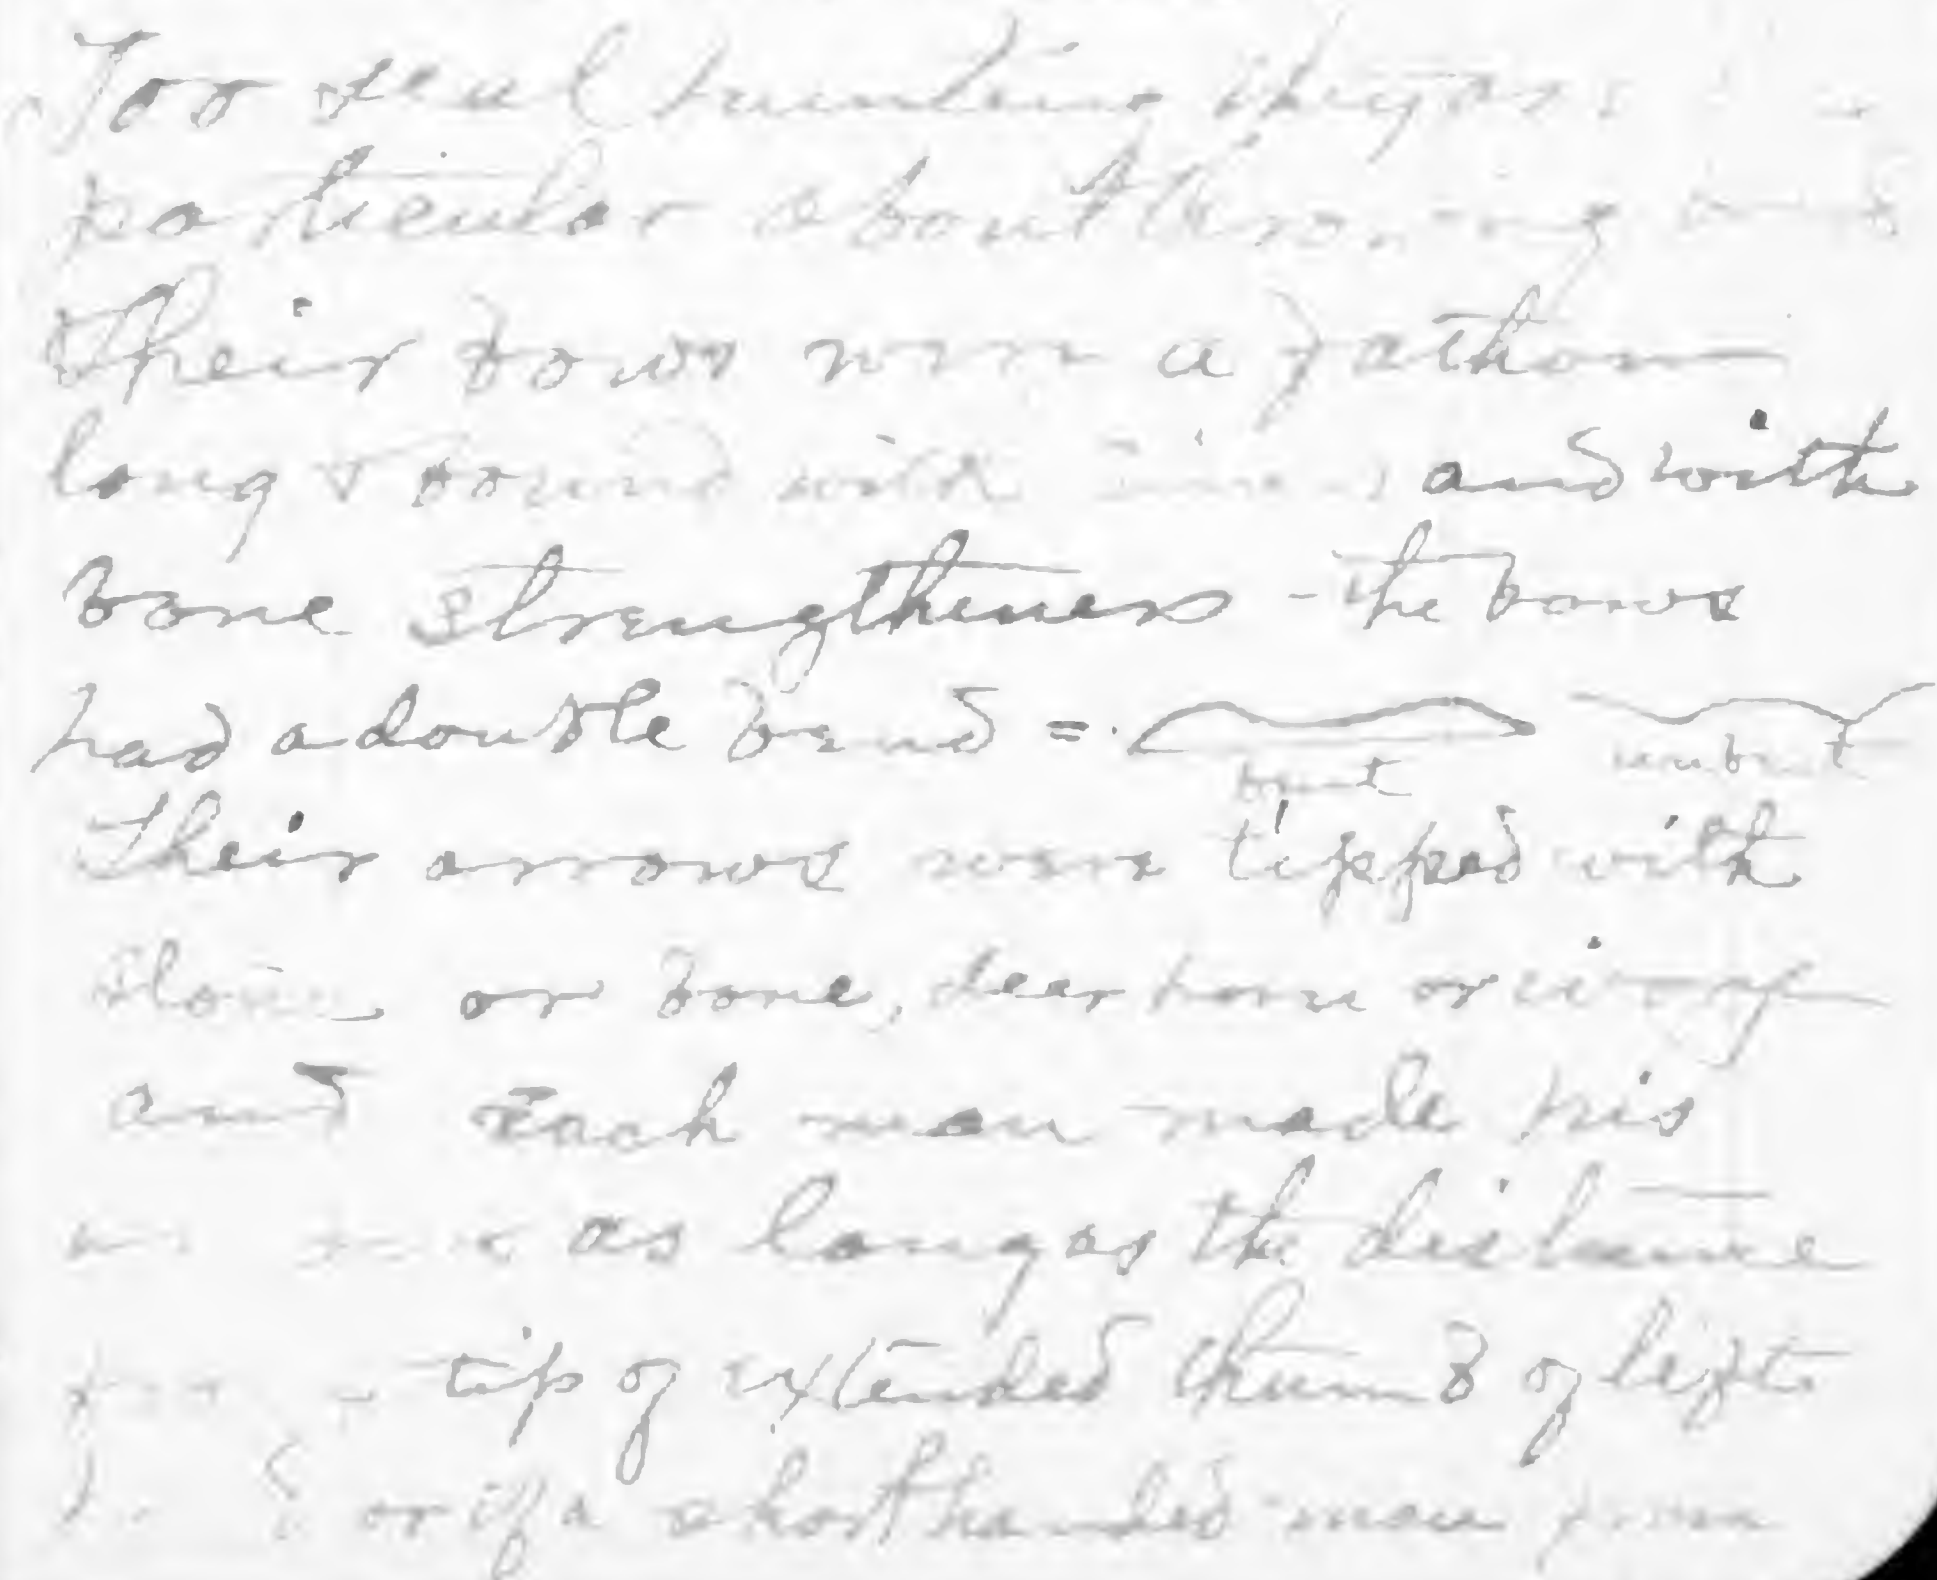 For seal hunting they are
particular about
Their bows were a fathom
long & bound with and with
bone strengtheners - the bows
had a double bend =
bent unbent
Their arrows were tipped with
stone or bone, deer horn or ivory
and Each man made his
as long as the distance
from tip of extended thumb of left
or if a shorthanded man from